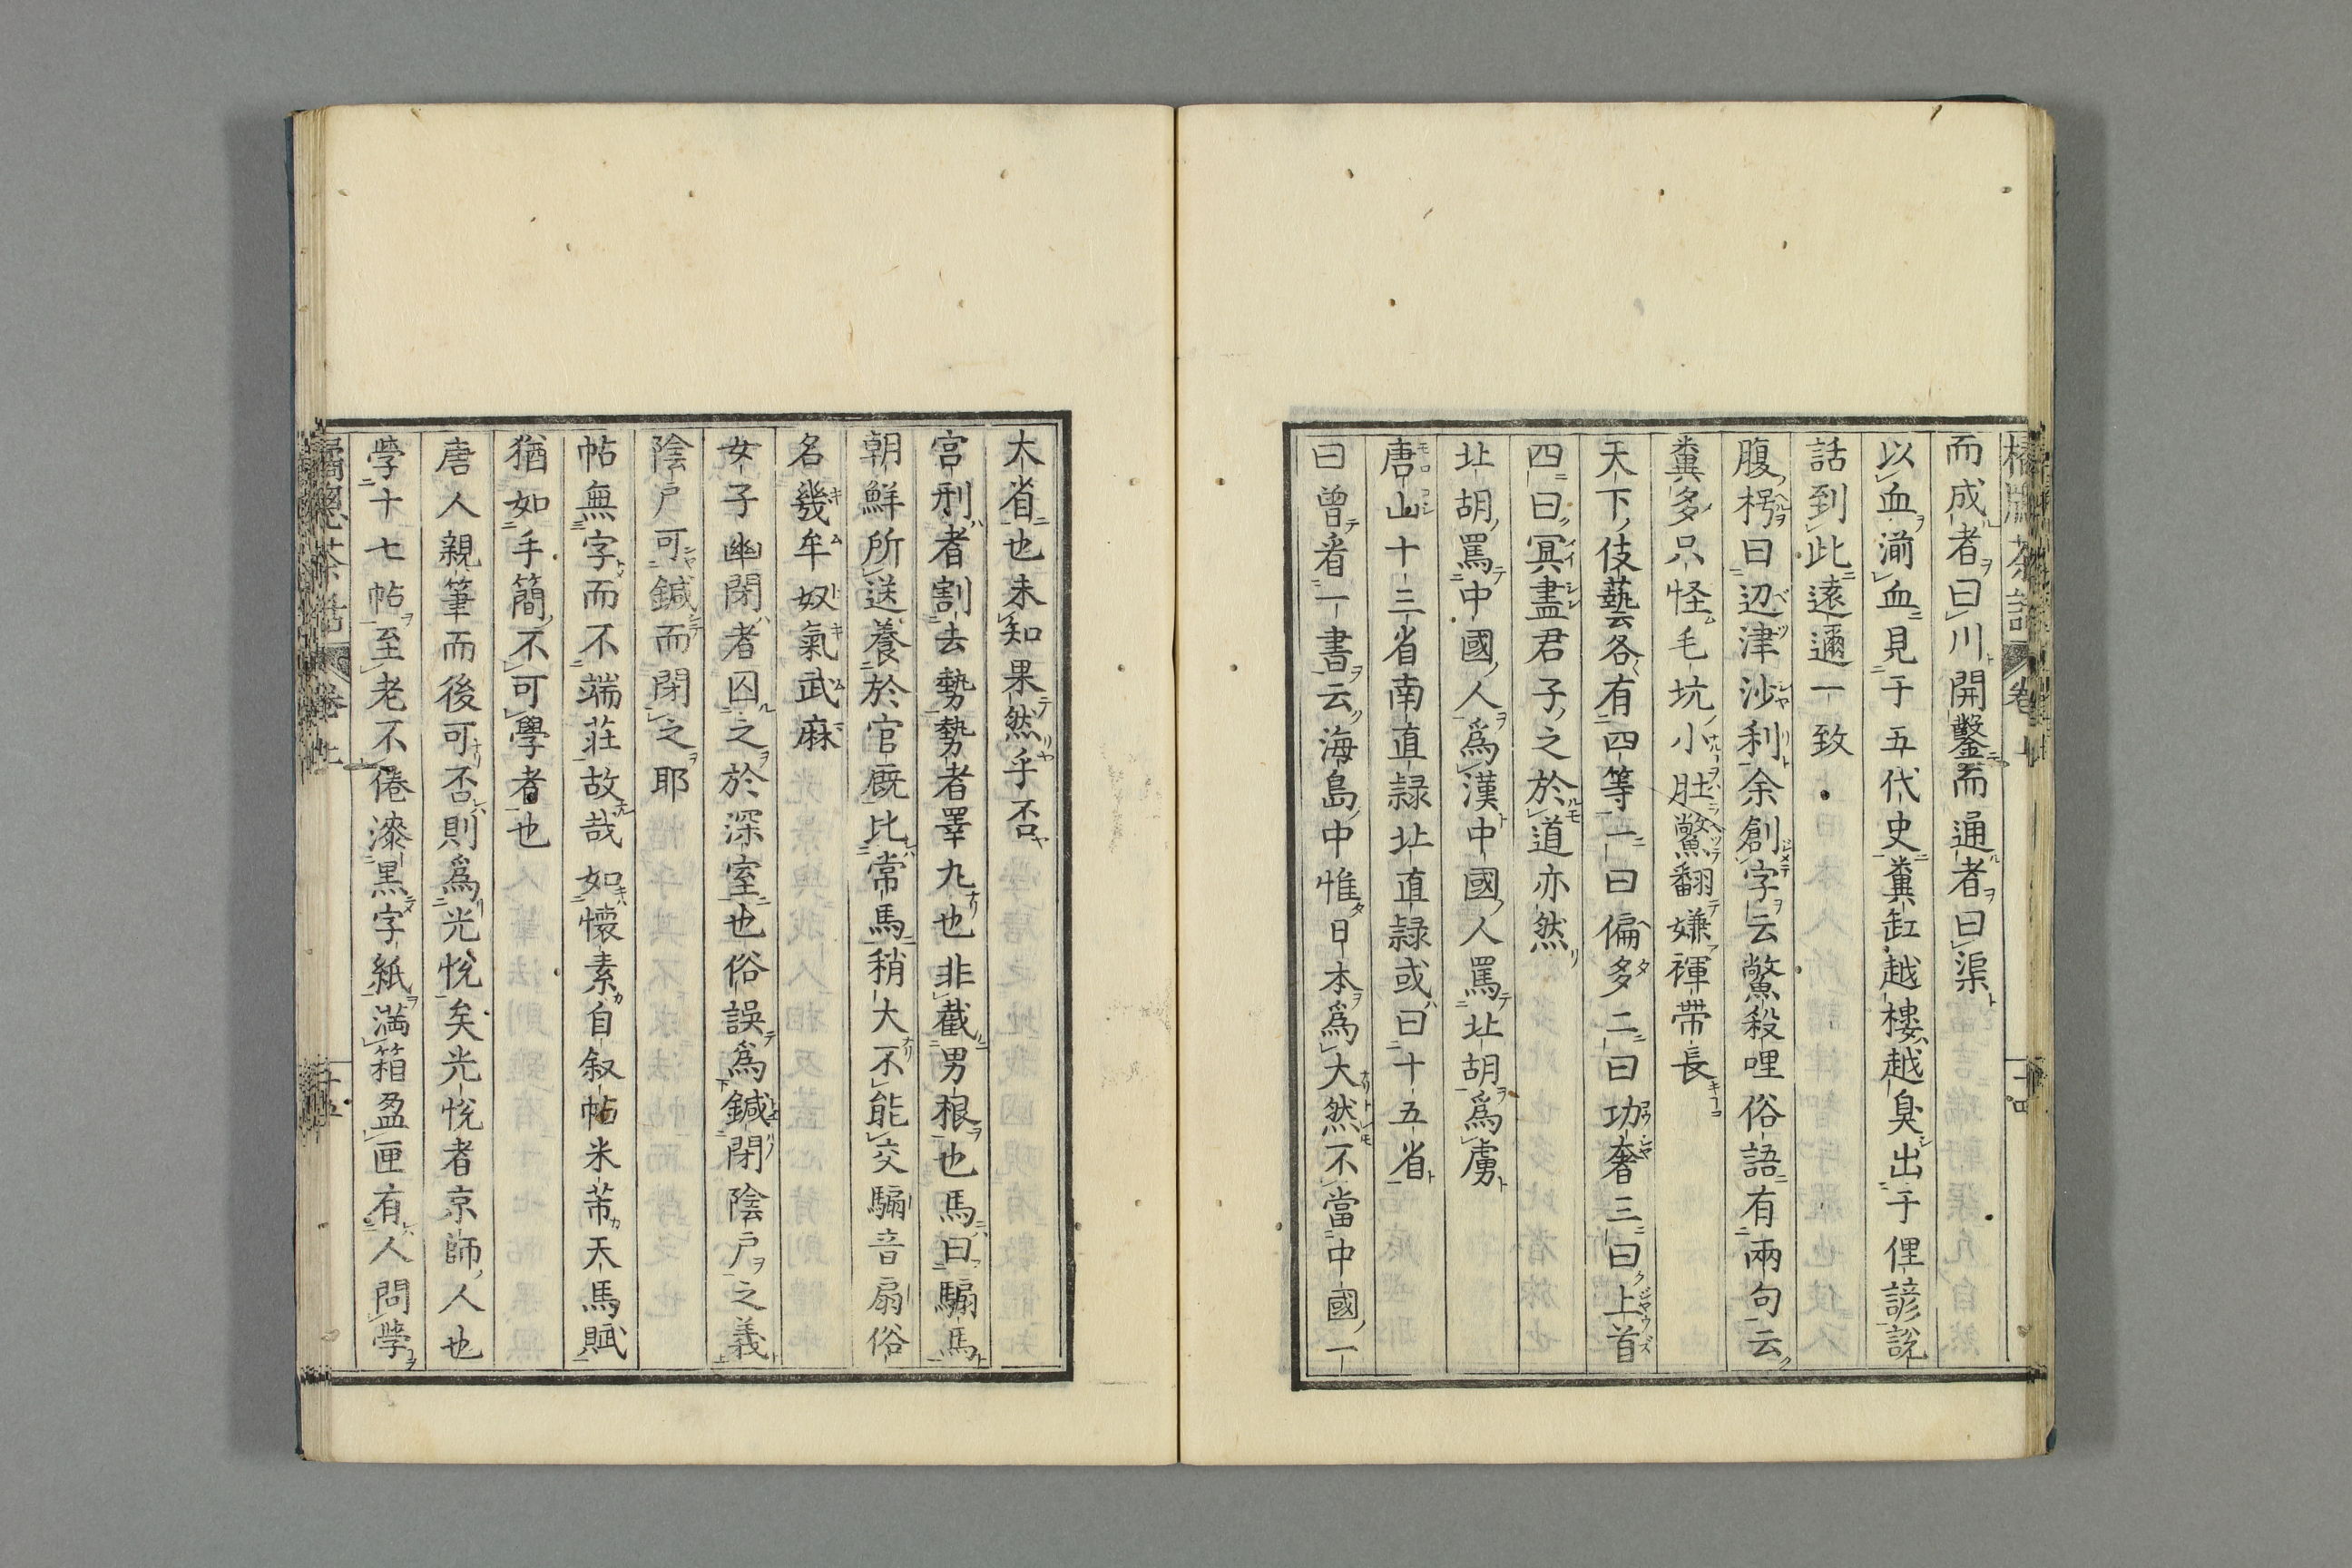 而成者曰川開鑿而通者曰渠
以血湔血見于五代史糞缸越樓越臭出于俚諺説
話到此遠邇一致
腹枵曰辺津沙利余創字云鱉殺哩俗語有兩句云
糞多只怪毛坑小肚鱉翻嫌褌帶長
天下伎藝各有四等一曰偏多二曰功奢三曰上首
四曰冥盡君子之於道亦然
北胡罵中國人爲漢中國人罵北胡爲虜
唐山十三省南直隷北直隷或曰十五省
曰曾看一書云海島中惟日本爲大然不當中國一
大省也未知果然乎否
宮刑者割去勢勢者睪丸也非截男根也馬曰騸馬
朝鮮所送養於官廐比常馬稍大不能交騸音扇俗
名幾牟奴氣武麻
女子幽閉者囚之於深室也俗誤爲鍼閉陰戸之義
陰戸可鍼而閉之耶
帖無字而不端莊故哉如懷素自叙帖米芾天馬賦
猶如手簡不可學者也
唐人親筆而後可否則爲光悅矣光悅者京師人也
學十七帖至老不倦漆黒字紙満箱盈匣有人問學